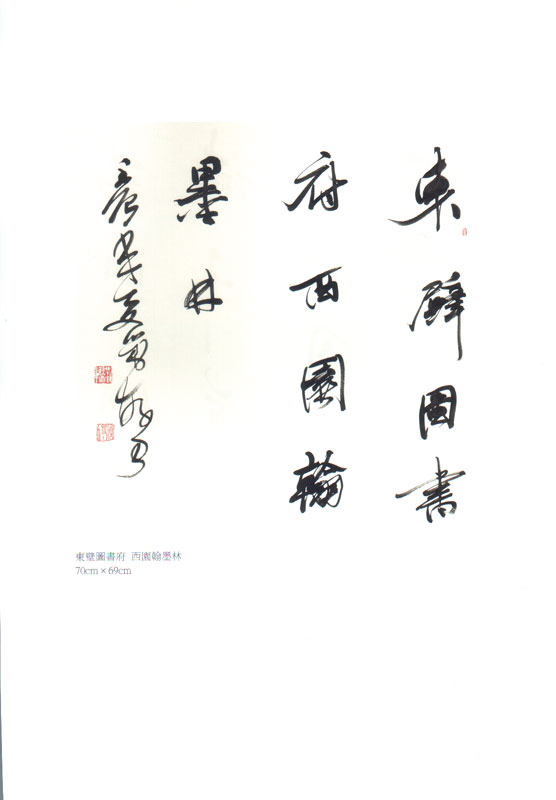 東壁圖書
府西園翰
墨林
東壁圖書府 西園翰墨林
70cm×69cm